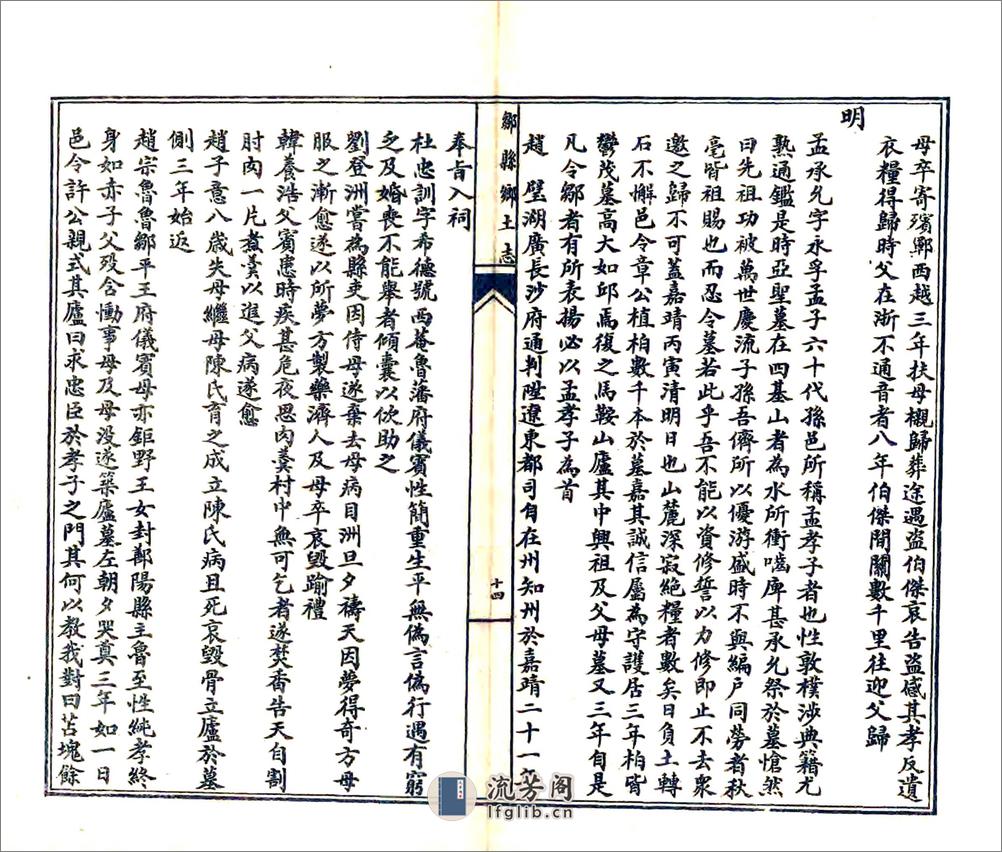 母卒寄殯鄲西越三年扶母櫬歸葬途遇盜伯傑哀告盜感其孝反遺
衣糧得歸時父在浙不通音者八年伯傑間關數千里往迎父歸
明
孟承允字永孚孟子六十代孫邑所稱孟孝子者也性敦樸涉典籍尤
熟通鑑是時亞聖墓在四基山者為水所衝嚙庳甚承允祭於墓愴然
曰先祖功被萬世慶流子孫吾儕所以優游盛時不與編戶同勞者秋
毫皆祖賜也而忍令墓若此乎吾不能以資修誓以力修即止不去衆
邀之歸不可蓋嘉靖丙寅清明日也山麓深寂絕糧者數矣日負土轉
石不懈邑令章公植柏數千本於墓嘉其誠信屬為守護居三年柏皆
鬱茂墓高大如邱焉復之馬鞍山廬其中興祖及父母墓又三年自是
凡令鄒者有所表揚必以孟孝子為首
趙 璧湖廣長沙府通判陞遼東都司自在州知州於嘉靖二十一
鄒縣鄉土志
十四
奉旨入祠
杜忠訓字希德號西菴魯藩府儀賓性簡重生平無偽言偽行遇有窮
乏及婚喪不能舉者傾囊以佽助之
劉登洲嘗為縣吏因侍母遂棄去母病目洲旦夕禱天因夢得奇方母
服之漸愈遂以所夢方製藥濟人及母卒哀毀踰禮
韓養浩父賓患時疾甚危夜思肉羹村中無可乞者遂焚香告天自割
肘肉一片煮羹以進父病遂愈
趙子意八歲失母繼母陳氏育之成立陳氏病且死哀毀骨立廬於墓
側三年始返
趙宗魯魯鄒平王府儀賓母亦鉅野王女封鄢陽縣主魯至性純孝終
身如赤子父歿含慟事母及母沒遂築廬墓左朝夕哭奠三年如一日
邑令許公親式其廬曰求忠臣於孝子之門其何以教我對曰苫塊餘
流芳阁
lfglib.cn